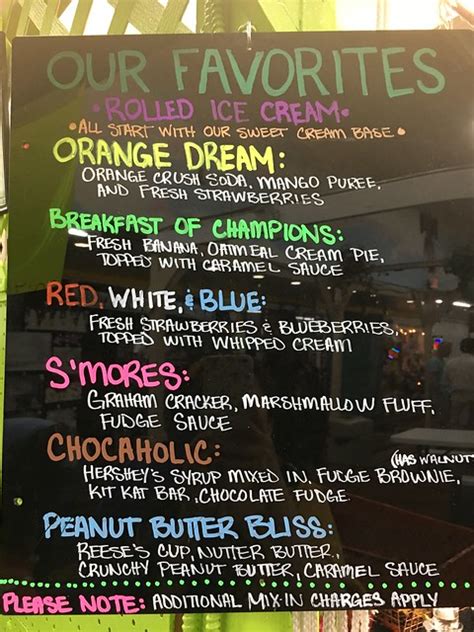 OUR FAVORITES
• ROLLED ICE CREAM •
• ALL START WITH OUR SWEET CREAM BASE •
ORANGE DREAM:
ORANGE CRUSH SODA, MANGO PUREE,
AND FRESH STRAWBERRIES
BREAKFAST OF CHAMPIONS:
FRESH BANANA, OATMEAL CREAM PIE,
TOPPED WITH CARAMEL SAUCE
RED, WHITE, & BLUE:
FRESH STRAWBERRIES & BLUEBERRIES,
TOPPED WITH WHIPPED CREAM
S'MORES:
GRAHAM CRACKER, MARSHMALLOW FLUFF,
FUDGE SAUCE
CHOCAHOLIC:
(HAS WALNUT
HERSHEY'S SYRUP MIXED IN, FUDGE BROWNIE,
KIT KAT BAR, CHOCOLATE FUDGE
PEANUT BUTTER BLISS:
REESE'S CUP, NUTTER BUTTER,
CRUNCHY PEANUT BUTTER, CARAMEL SAUCE
PLEASE NOTE: ADDITIONAL MIX-IN CHARGES APPLY